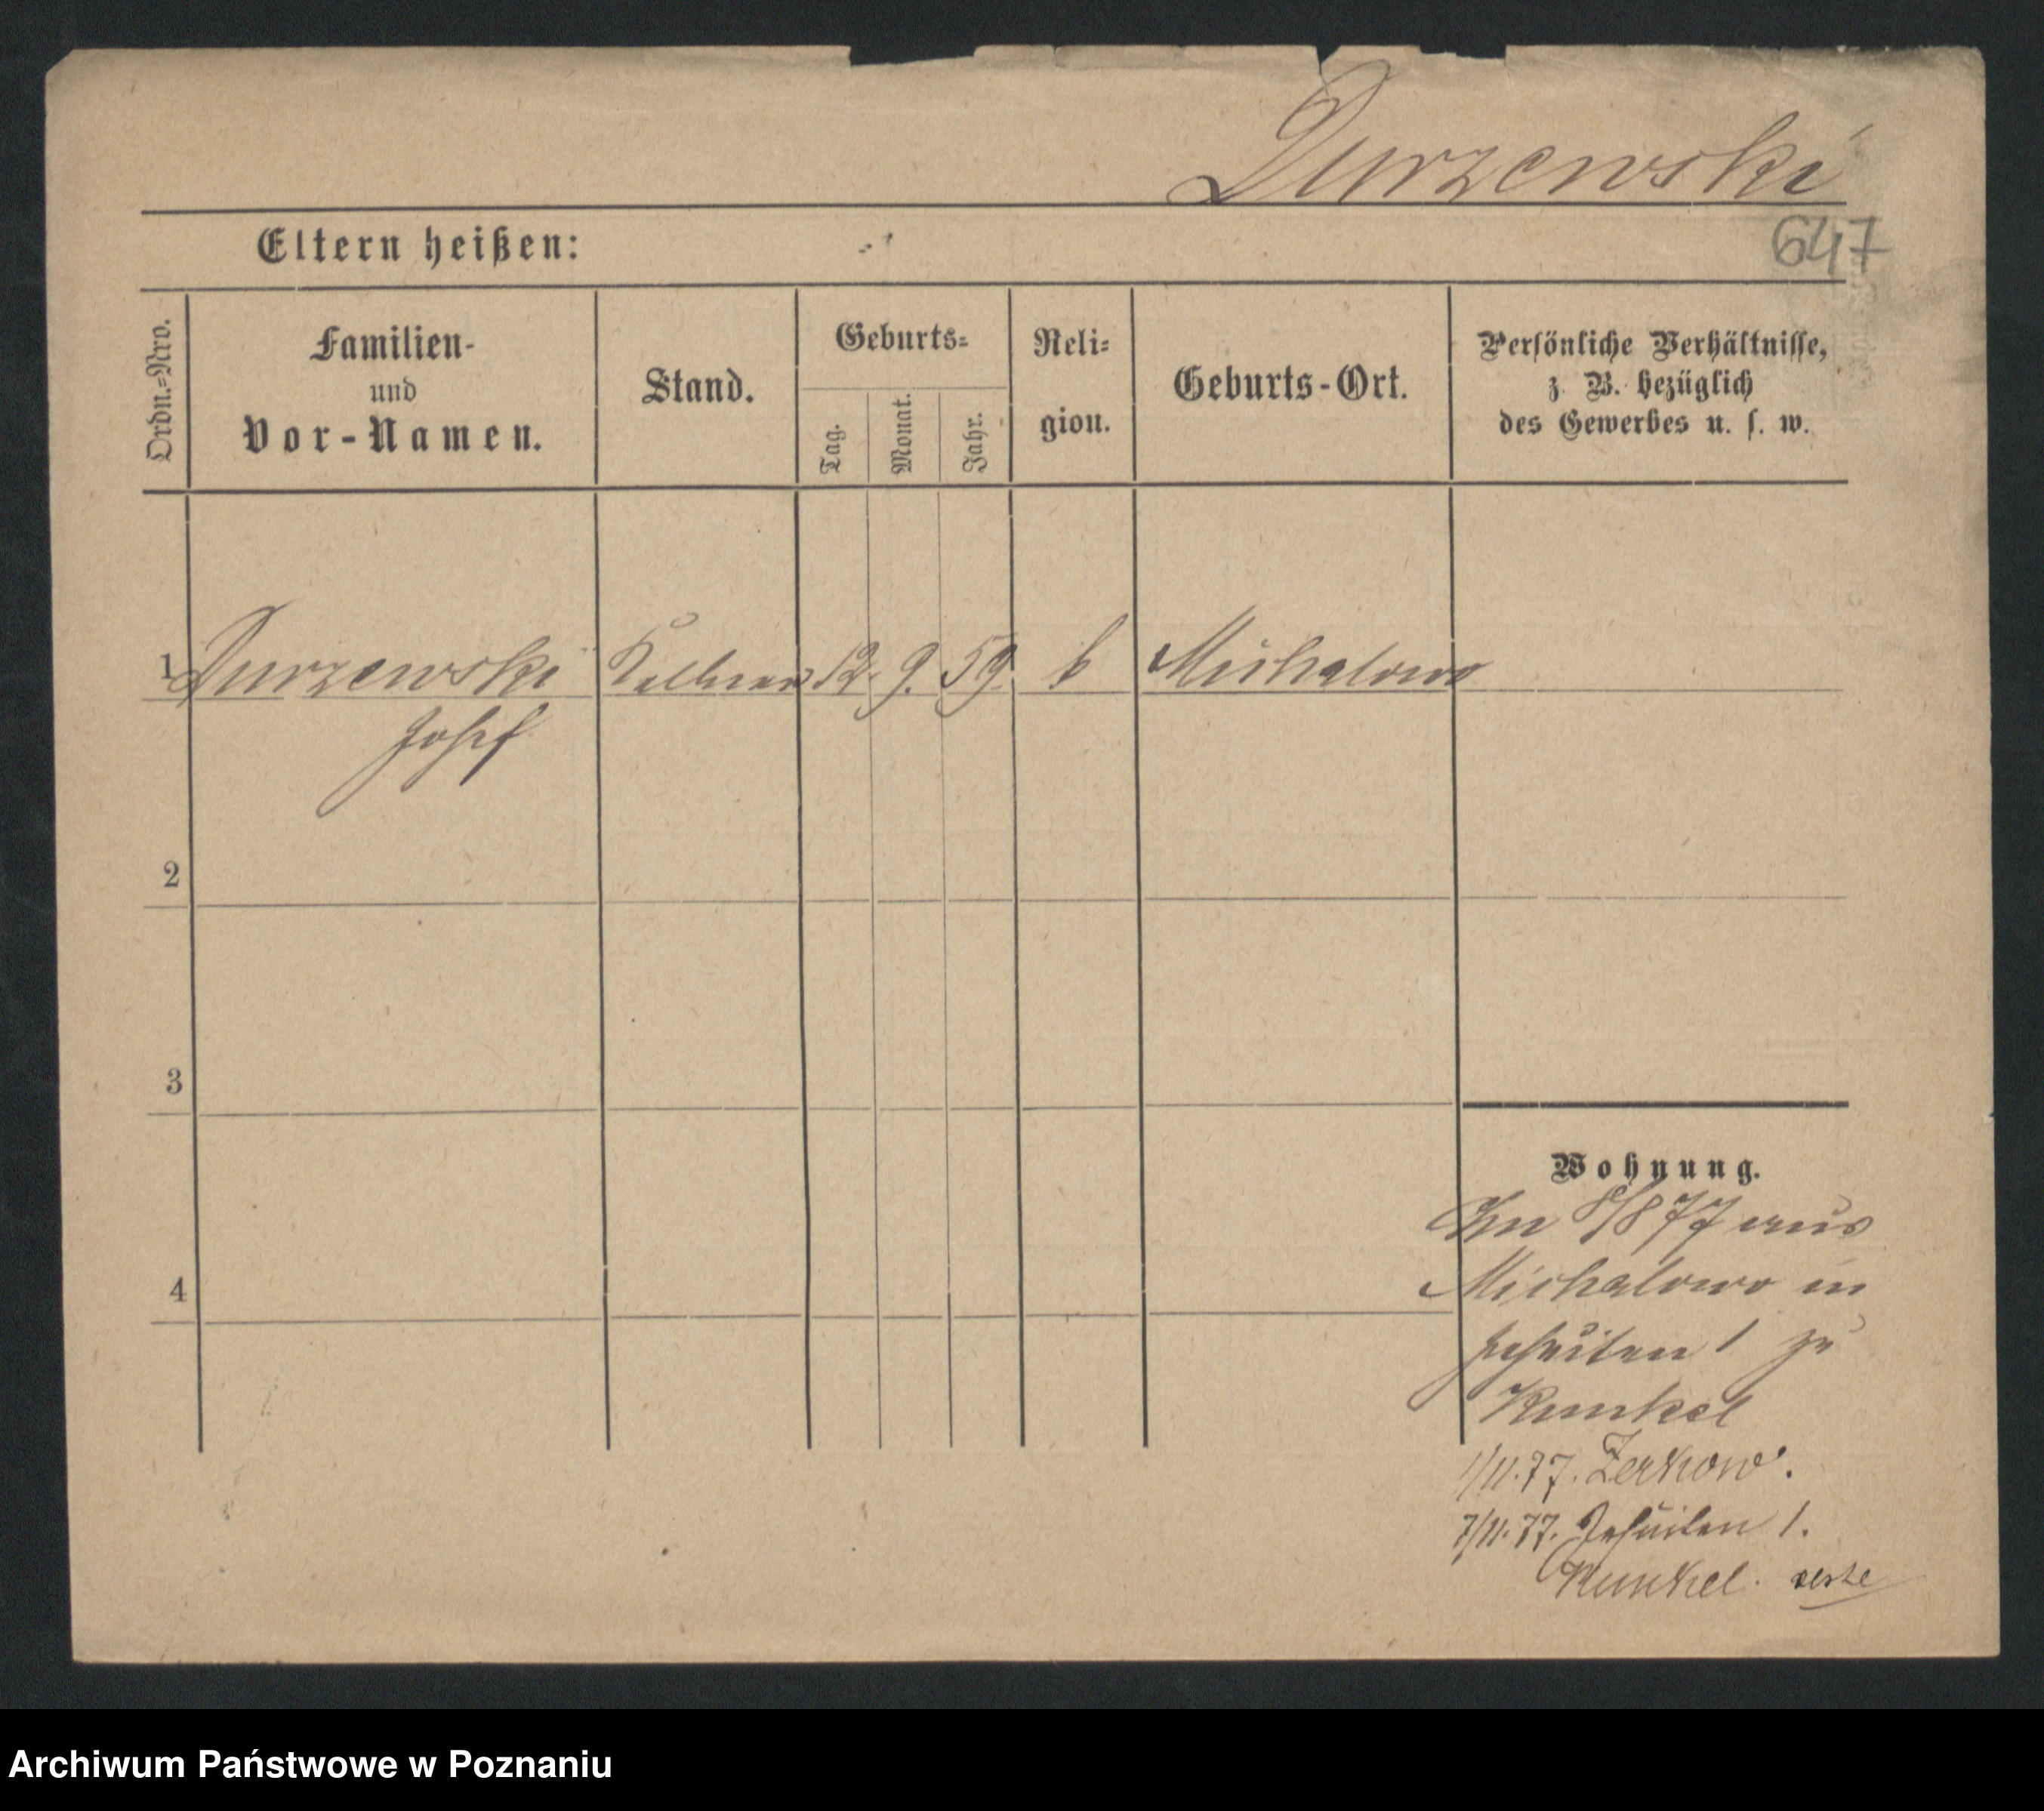 Durzewski
647
Eltern heißen:
Ordn.=Nro.
Familien-
und
Vor-Namen.
Stand.
Geburts=
Tag.
Monat.
Jahr.
Reli=
gion.
Geburts-Ort.
Persönliche Verhältnisse,
z. B. bezüglich
des Gewerbes u. s. w.
1 Durzewski Kellner 12. 9. 59. k Michalowo
Josef
2
3
4
Wohnung.
8/8 77 aus
Michalowo in
Jesuiten 1 zu
Kunkel
1/11. 77. Zerkow.
7/11. 77. Jesuiten 1.
Kunkel.
Archiwum Państwowe w Poznaniu